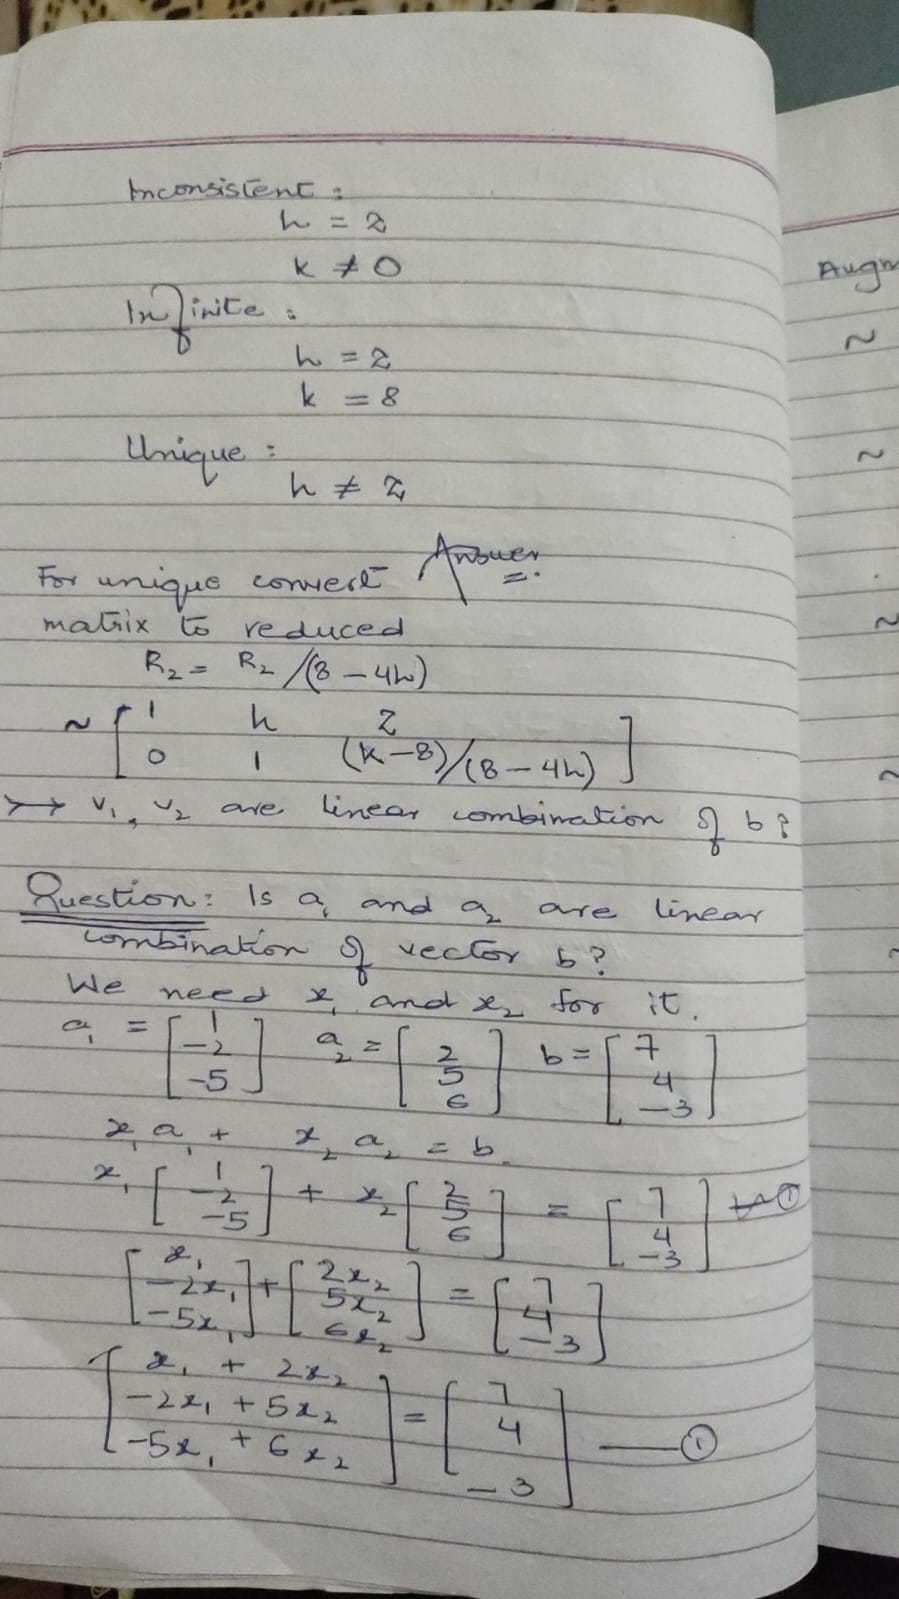 Inconsistent :
h = 2
k ≠ 0
Infinite :
h = 2
k = 8
Unique :
h ≠ 2
Answer
For unique convert
matrix to reduced
R₂ = R₂ /(8 − 4h)
~ [ 1 h 2
0 1 (k−8)/(8−4h) ]
v₁, v₂ are linear combination of b?
Question: Is a₁ and a₂ are linear
combination of vector b?
We need x₁ and x₂ for it.
a₁ = [ 1 -2 -5 ] a₂ = [ 2 5 6 ] b = [ 7 4 -3 ]
x₁ a₁ + x₂ a₂ = b.
x₁ [ 1 -2 -5 ] + x₂ [ 2 5 6 ] = [ 7 4 -3 ]
[ x₁ -2x₁ -5x₁ ] + [ 2x₂ 5x₂ 6x₂ ] = [ 7 4 -3 ]
[ x₁ + 2x₂
-2x₁ + 5x₂
-5x₁ + 6x₂ ] = [ 7 4 -3 ] — ①
Augm
~
~
~
~